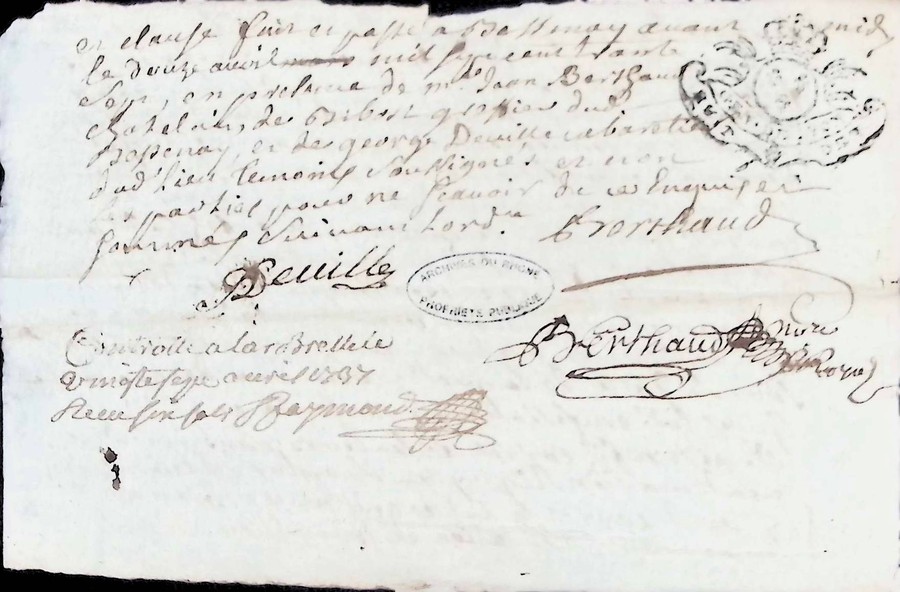 et clause fait et passé a Bessenay avant midy
le douze avril mil sept cent trante
sept, en presence de mre Jean Berthaud
chatelain, de Bibost greffier dud
Bessenay, et de george Deville cabaretier
dud lieu temoins soussignés et non
les parties pour ne scavoir de ce Enquises et
sommées suivant Lord.re Berthaud
Deville
ARCHIVES DU RHÔNE
PROPRIÉTÉ PUBLIQUE
Berthaud nore Royal
Controllé a larbrelle le
vingt sept avril 1737
Receu six sols Raymond